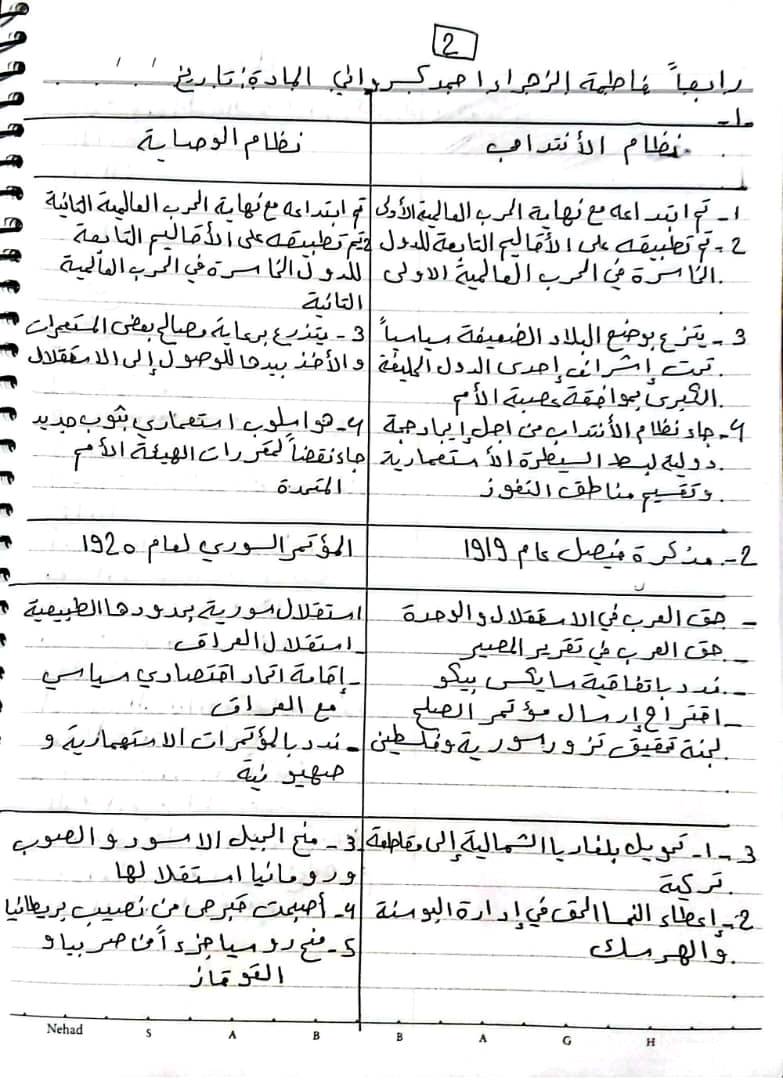 2
رابعاً فاطمة الزهراء احمد كسرواني المادة: تاريخ
1-
نظام الأنتداب
نظام الوصاية
1- تم ابتداعه مع نهاية الحرب العالمية الأولى
2- تم تطبيقه على الأقاليم التابعة للدول
الخاسرة في الحرب العالمية الاولى
3- يتزع بوضع البلاد الضعيفة سياسياً
تحت إشراف إحدى الدول الحليفة
الكبرى بموافقة عصبة الأمم
4- جاء نظام الأنتداب من اجل إيجاد حجة
دولية لبسط السيطرة الأستعمارية
وتقسيم مناطق النفوذ
تم ابتداعه مع نهاية الحرب العالمية الثانية
2 تم تطبيقه على الأقاليم التابعة
للدول الخاسرة في الحرب العالمية
الثانية
3- يتذرع برعاية مصالح بعض المستعمرات
والأخذ بيدها للوصول إلى الاستقلال
4- هو اسلوب استعماري بثوب جديد
جاء نقضاً لمقررات الهيئة الأمم
المتحدة
2- مذكرة فيصل عام 1919
المؤتمر السوري لعام 1920
- حق العرب في الاستقلال والوحدة
- حق العرب في تقرير المصير
- ندد باتفاقية سايكس بيكو
- اقتراح إرسال مؤتمر الصلح
لجنة تحقيق تزور سورية وفلسطين
استقلال سورية بحدودها الطبيعية
- استقلال العراق
- إقامة اتحاد اقتصادي سياسي
مع العراق
- ندد بالمؤتمرات الاستعمارية و
صهيونية
3- 1- تحويل بلغاريا الشمالية إلى مقاطعة
تركية
2- إعطاء النمسا الحق في إدارة البوسنة
والهرسك
3- منح الجبل الاسود والصرب
ورومانيا استقلالها
4- أصبحت قبرص من نصيب بريطانيا
5- منح روسيا جزءاً من صربيا و
القوقاز
Nehad S A B B A G H